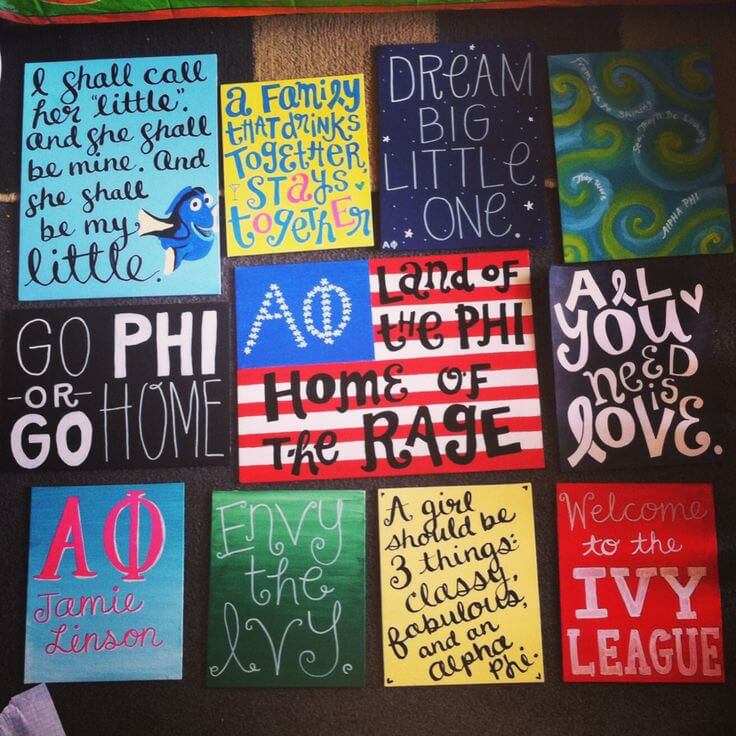 I shall call
her "little".
And she shall
be mine. And
she shall
be my
little.
a family
that drinks
together
stays
together
DREAM
BIG
LITTLE
ONE.
ΑΦ
From Sea to Shining
Sea They'll Be Longing
They Were
ALPHA PHI
GO PHI
-OR-
GO HOME
ΑΦ
Land of
the PHI
Home of
the RAGE
All
you
need
is
love.
ΑΦ
Jamie
Linson
Envy
the
Ivy
A girl
should be
3 things:
classy,
fabulous,
and an
Alpha
Phi.
Welcome
to the
IVY
LEAGUE